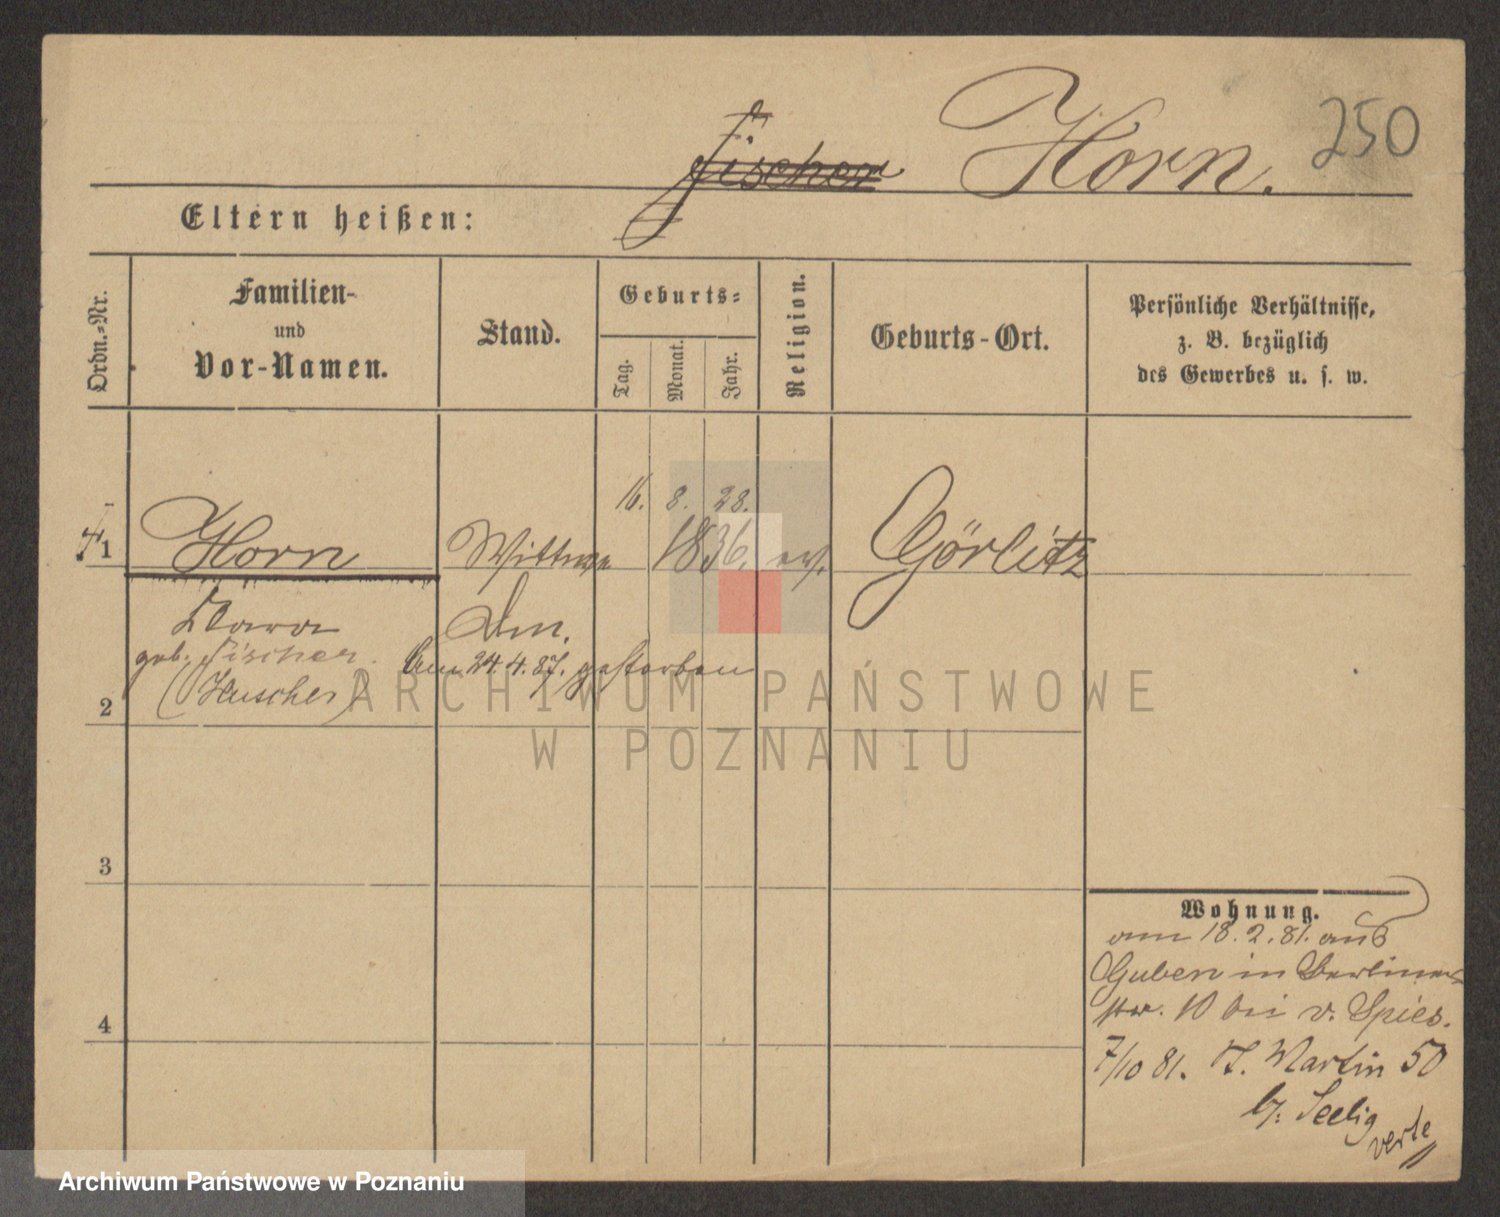 Fischer Horn. 250
Eltern heißen:
Ordn.-Nr.
Familien-
und
Vor-Namen.
Stand.
Geburts-
Tag.
Monat.
Jahr.
Religion.
Geburts-Ort.
Persönliche Verhältnisse,
z. B. bezüglich
des Gewerbes u. s. w.
16. 8. 28.
1 Horn Wittwe 1836. ev. Görlitz
Clara
geb. Fischer
am 24.4.87. gestorben
(Huscher)
2
3
4
Wohnung.
am 18.2.81. aus
Guben in Berliner-
str. 10 bei v. Spies.
7/10 81. St. Martin 50
b/. Seelig
verte
ARCHIWUM PAŃSTWOWE
W POZNANIU
Archiwum Państwowe w Poznaniu